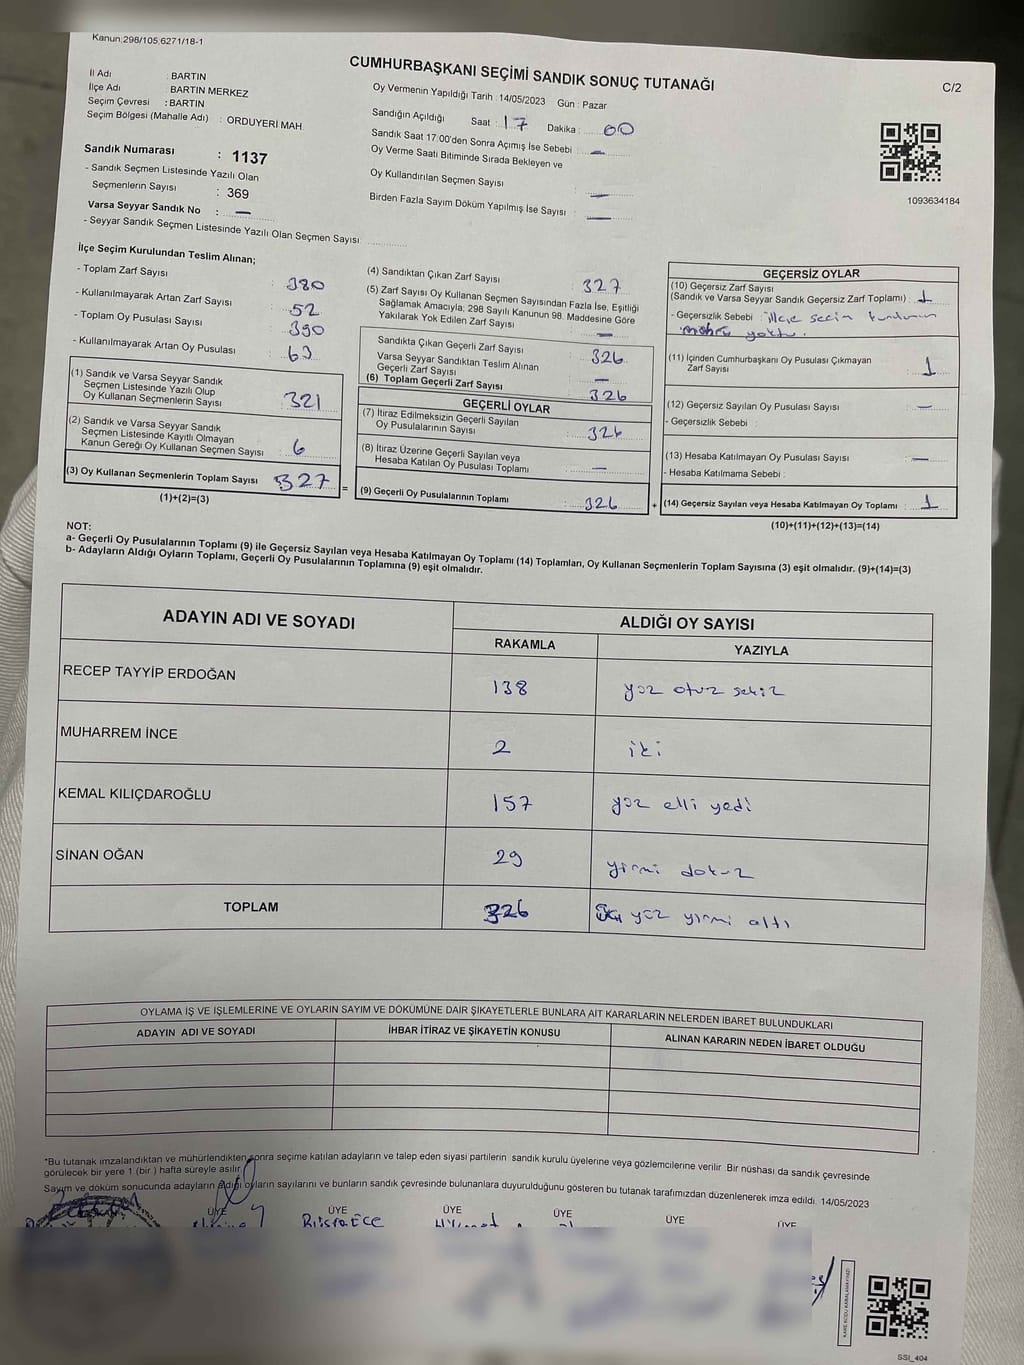 Kanun:298/105,6271/18-1
CUMHURBAŞKANI SEÇİMİ SANDIK SONUÇ TUTANAĞI
C/2
İl Adı : BARTIN
İlçe Adı : BARTIN MERKEZ
Seçim Çevresi : BARTIN
Seçim Bölgesi (Mahalle Adı) : ORDUYERİ MAH.
Sandık Numarası : 1137
- Sandık Seçmen Listesinde Yazılı Olan
Seçmenlerin Sayısı : 369
Varsa Seyyar Sandık No : —
- Seyyar Sandık Seçmen Listesinde Yazılı Olan Seçmen Sayısı:
Oy Vermenin Yapıldığı Tarih : 14/05/2023 Gün : Pazar
Sandığın Açıldığı Saat : 17 Dakika : 00
Sandık Saat 17:00'den Sonra Açımış İse Sebebi : —
Oy Verme Saati Bitiminde Sırada Bekleyen ve
Oy Kullandırılan Seçmen Sayısı : —
Birden Fazla Sayım Döküm Yapılmış İse Sayısı : —
1093634184
İlçe Seçim Kurulundan Teslim Alınan;
- Toplam Zarf Sayısı : 380
- Kullanılmayarak Artan Zarf Sayısı : 52
- Toplam Oy Pusulası Sayısı : 390
- Kullanılmayarak Artan Oy Pusulası : 63
(1) Sandık ve Varsa Seyyar Sandık
Seçmen Listesinde Yazılı Olup
Oy Kullanan Seçmenlerin Sayısı : 321
(2) Sandık ve Varsa Seyyar Sandık
Seçmen Listesinde Kayıtlı Olmayan
Kanun Gereği Oy Kullanan Seçmen Sayısı : 6
(3) Oy Kullanan Seçmenlerin Toplam Sayısı : 327
(1)+(2)=(3)
=
(4) Sandıktan Çıkan Zarf Sayısı : 327
(5) Zarf Sayısı Oy Kullanan Seçmen Sayısından Fazla İse, Eşitliği
Sağlamak Amacıyla; 298 Sayılı Kanunun 98. Maddesine Göre
Yakılarak Yok Edilen Zarf Sayısı : —
Sandıkta Çıkan Geçerli Zarf Sayısı : 326
Varsa Seyyar Sandıktan Teslim Alınan
Geçerli Zarf Sayısı : —
(6) Toplam Geçerli Zarf Sayısı : 326
GEÇERLİ OYLAR
(7) İtiraz Edilmeksizin Geçerli Sayılan
Oy Pusulalarının Sayısı : 326
(8) İtiraz Üzerine Geçerli Sayılan veya
Hesaba Katılan Oy Pusulası Toplamı : —
(9) Geçerli Oy Pusulalarının Toplamı : 326
+
GEÇERSİZ OYLAR
(10) Geçersiz Zarf Sayısı
(Sandık ve Varsa Seyyar Sandık Geçersiz Zarf Toplamı) : 1
- Geçersizlik Sebebi : ilçe seçim kurulunun
mührü yoktu.
(11) İçinden Cumhurbaşkanı Oy Pusulası Çıkmayan
Zarf Sayısı : 1
(12) Geçersiz Sayılan Oy Pusulası Sayısı : —
- Geçersizlik Sebebi :
(13) Hesaba Katılmayan Oy Pusulası Sayısı : —
- Hesaba Katılmama Sebebi :
(14) Geçersiz Sayılan veya Hesaba Katılmayan Oy Toplamı : 1
(10)+(11)+(12)+(13)=(14)
NOT:
a- Geçerli Oy Pusulalarının Toplamı (9) ile Geçersiz Sayılan veya Hesaba Katılmayan Oy Toplamı (14) Toplamları, Oy Kullanan Seçmenlerin Toplam Sayısına (3) eşit olmalıdır. (9)+(14)=(3)
b- Adayların Aldığı Oyların Toplamı, Geçerli Oy Pusulalarının Toplamına (9) eşit olmalıdır.
ADAYIN ADI VE SOYADI
ALDIĞI OY SAYISI
RAKAMLA YAZIYLA
RECEP TAYYİP ERDOĞAN 138 yüz otuz sekiz
MUHARREM İNCE 2 iki
KEMAL KILIÇDAROĞLU 157 yüz elli yedi
SİNAN OĞAN 29 yirmi dokuz
TOPLAM 326 üç yüz yirmi altı
OYLAMA İŞ VE İŞLEMLERİNE VE OYLARIN SAYIM VE DÖKÜMÜNE DAİR ŞİKAYETLERLE BUNLARA AİT KARARLARIN NELERDEN İBARET BULUNDUKLARI
ADAYIN ADI VE SOYADI İHBAR İTİRAZ VE ŞİKAYETİN KONUSU ALINAN KARARIN NEDEN İBARET OLDUĞU
*Bu tutanak imzalandıktan ve mühürlendikten sonra seçime katılan adayların ve talep eden siyasi partilerin sandık kurulu üyelerine veya gözlemcilerine verilir. Bir nüshası da sandık çevresinde
görülecek bir yere 1 (bir) hafta süreyle asılır.
Sayım ve döküm sonucunda adayların aldığı oyların sayılarını ve bunların sandık çevresinde bulunanlara duyurulduğunu gösteren bu tutanak tarafımızdan düzenlenerek imza edildi. 14/05/2023
ÜYE ÜYE ÜYE ÜYE ÜYE ÜYE
KARE KODU KARALAMAYINIZ!
SSI_404